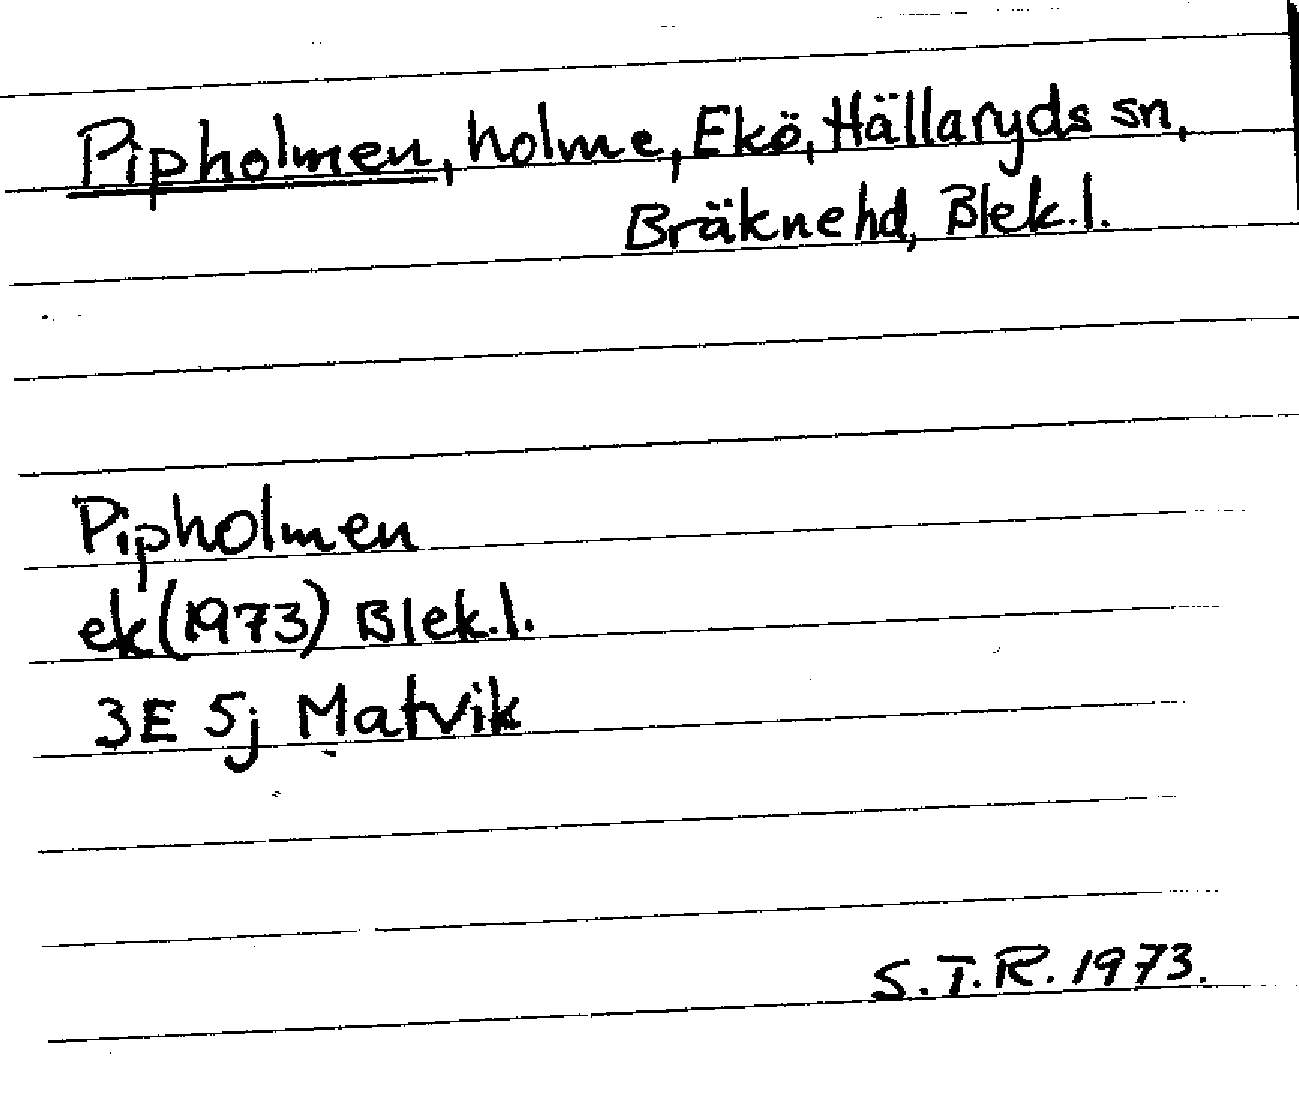 Pipholmen, holme, Ekö, Hällaryds sn,
Bräknehd, Blek.l.
Pipholmen
ek (1973) Blek.l.
3E 5j Matvik
S.T.R. 1973.